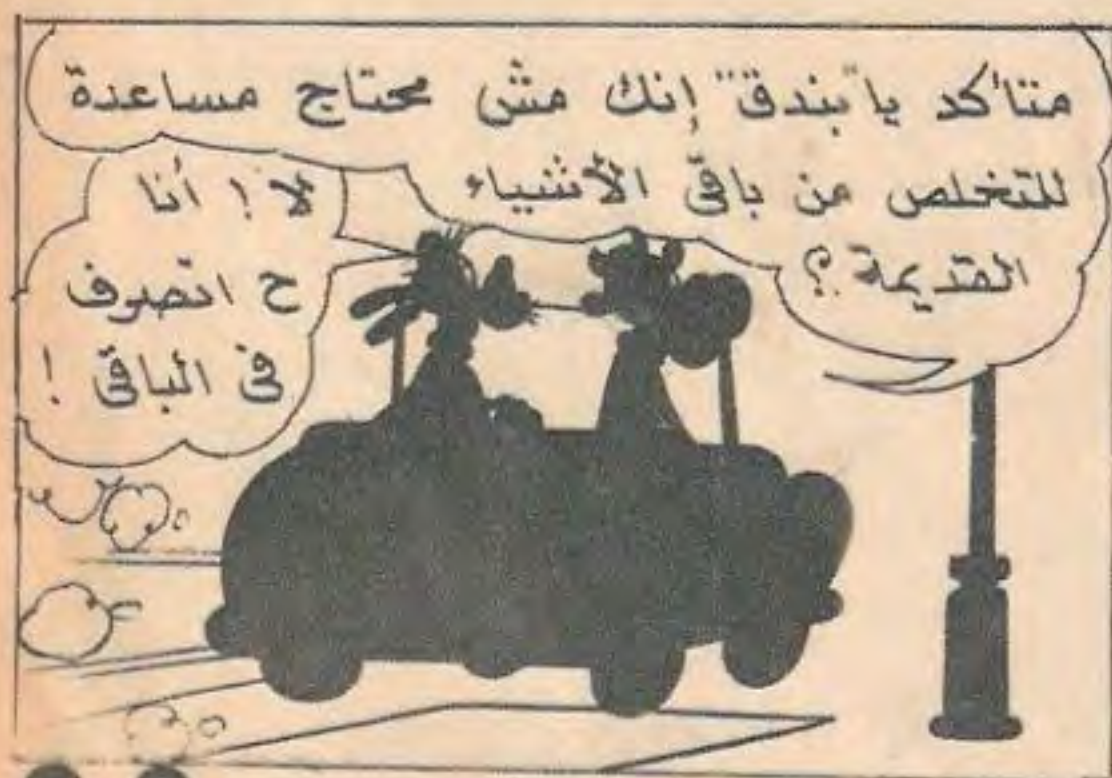 متأكد يا "بندق" إنك مش محتاج مساعدة
للتخلص من باقى الأشياء
القديمة ؟
لا ! أنا
ح اتصرف
فى الباقى !